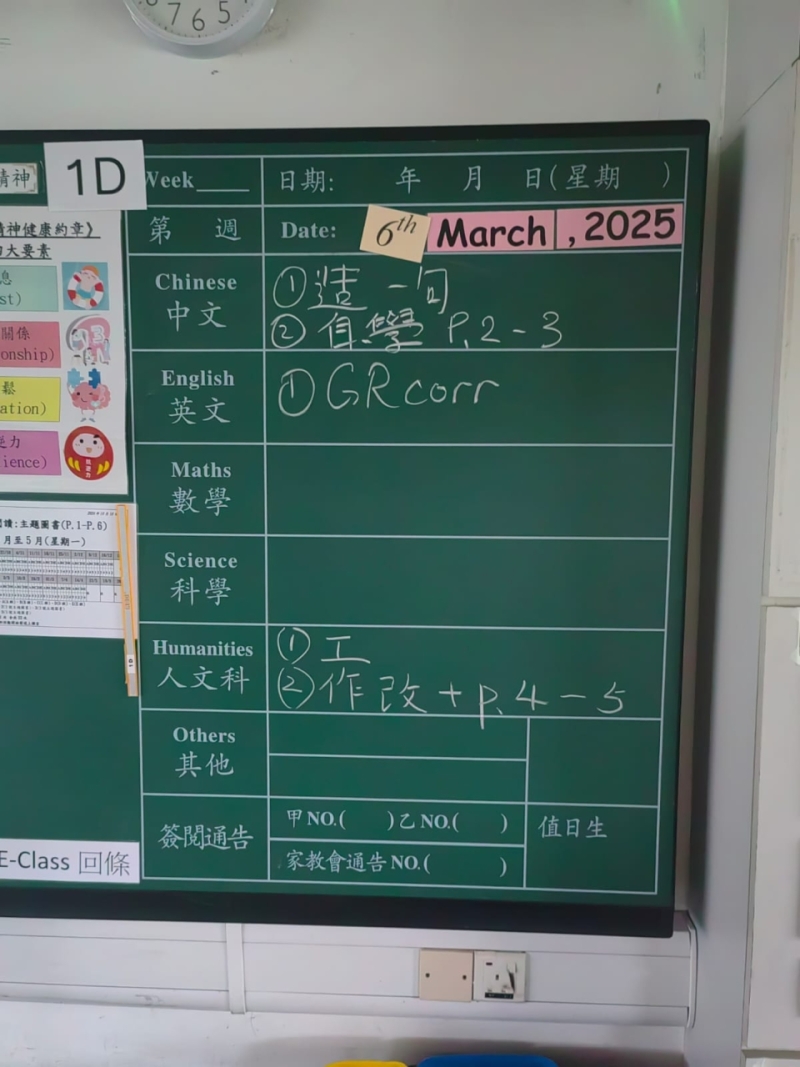 7 6 5
精神
1D
Week____ 日期: 年 月 日(星期 )
第 週 Date: 6th March , 2025
神健康約章》
大要素
息
st)
關係
onship)
鬆
ation)
力
ience)
Chinese 中文
①造一句
②自學 P.2-3
English 英文
①GR corr
Maths 數學
Science 科學
讀:主題圖書(P.1-P.6)
月至5月(星期一)
Humanities 人文科
①工
②作改+p.4-5
Others 其他
簽閱通告
甲NO.( )乙NO.( )
家教會通告NO.( )
值日生
E-Class 回條